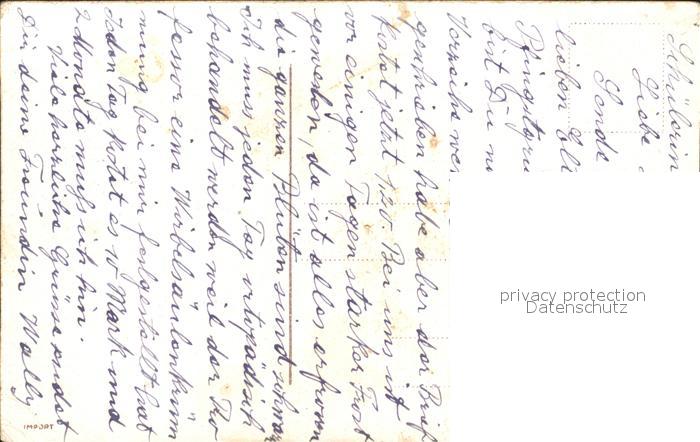 Schulern
Liebe
Sende
lieben
Pfingstgru
bist Du n
Verzeihe we
geschrieben habe aber der Brief
kostet jetzt 1.20. Bei uns ist
vor einigen Tagen starker Frost
gewesen, da ist alles erfroren
die ganzen Blüten sind schwarz
Ich muss jeden Tag ortopädisch
behandelt werden weil der Pro
fessor eine Wirbelsäulenkrüm
mung bei mir festgestellt hat
Jeden Tag kostet es 10 Mark und
2 Monate muss ich hin.
Viele herzliche Grüsse sendet
Dir deine Freundin Wally
IMPORT
privacy protection
Datenschutz